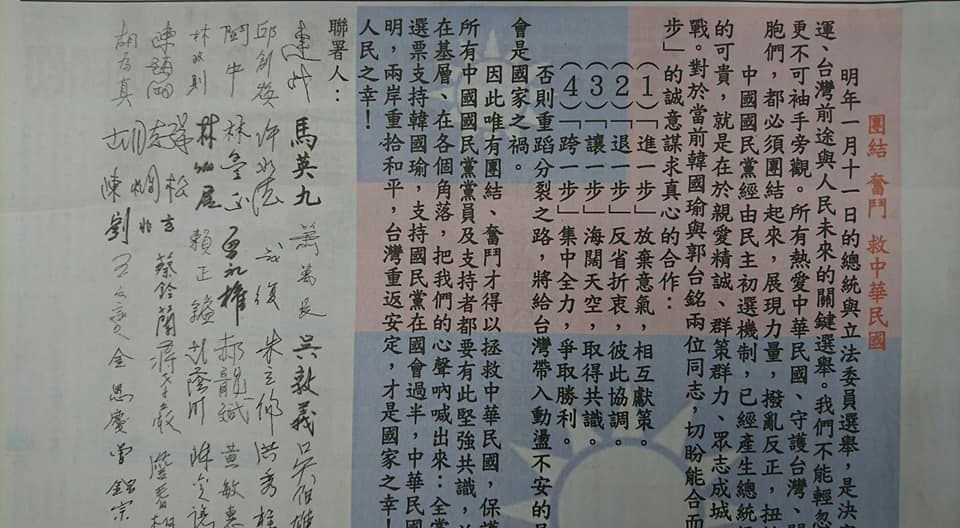 團結 奮鬥 救中華民國
明年一月十一日的總統與立法委員選舉,是決
運、台灣前途與人民未來的關鍵選舉。我們不能輕忽
更不可袖手旁觀。所有熱愛中華民國、守護台灣、
胞們,都必須團結起來,展現力量,撥亂反正,扭
中國國民黨經由民主初選機制,已經產生總統
的可貴,就是在於親愛精誠、群策群力、眾志成城
戰。對於當前韓國瑜與郭台銘兩位同志,切盼能合而
步」的誠意謀求真心的合作:
(1)「進一步」放棄意氣,相互獻策。
(2)「退一步」反省折衷,彼此協調。
(3)「讓一步」海闊天空,取得共識。
(4)「跨一步」集中全力,爭取勝利。
否則重蹈分裂之路,將給台灣帶入動盪不安的
會是國家之禍。
因此唯有團結、奮鬥才得以拯救中華民國,保
所有中國國民黨黨員及支持者都要有此堅強共識,
在基層、在各個角落,把我們的心聲吶喊出來:全
選票支持韓國瑜,支持國民黨在國會過半,中華民國
明,兩岸重拾和平,台灣重返安定,才是國家之幸!
人民之幸!
聯署人:
連戰 馬英九 蕭萬長 吳敦義 吳伯雄
邱創煥 許水德 朱立倫 洪秀柱
關中 林豐正 曾永權 郝龍斌 黃敏惠
林政則 賴正鎰
蔡鈴蘭
胡為真 陳 劉 金恩慶 曾銘宗